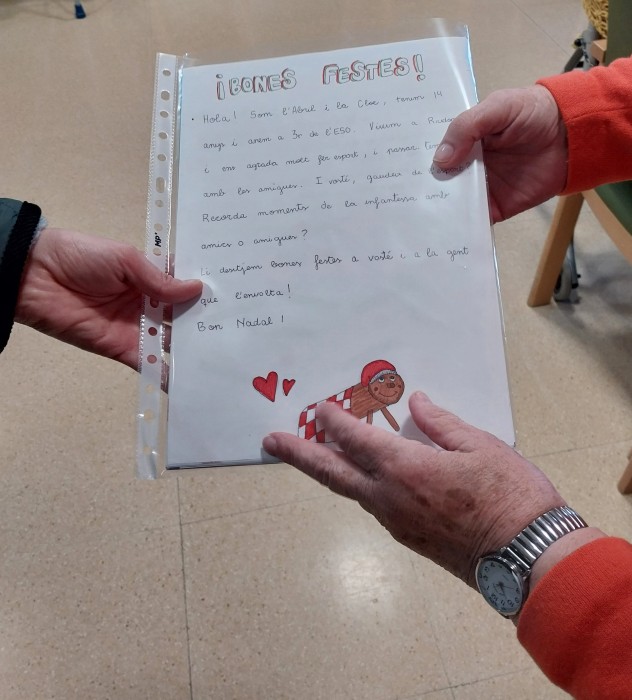 ¡BONES FESTES!
· Hola! Som l'Abril i la Cloe, tenim 14
anys i anem a 3r de l'ESO. Vivim a
i ens agrada molt fer esport, i passar
amb les amigues. I vostè, gaudeix de
Recorda moments de la infantesa amb
amics o amigues?
Li desitjem bones festes a vostè i a la gent
que l'envolta!
Bon Nadal!